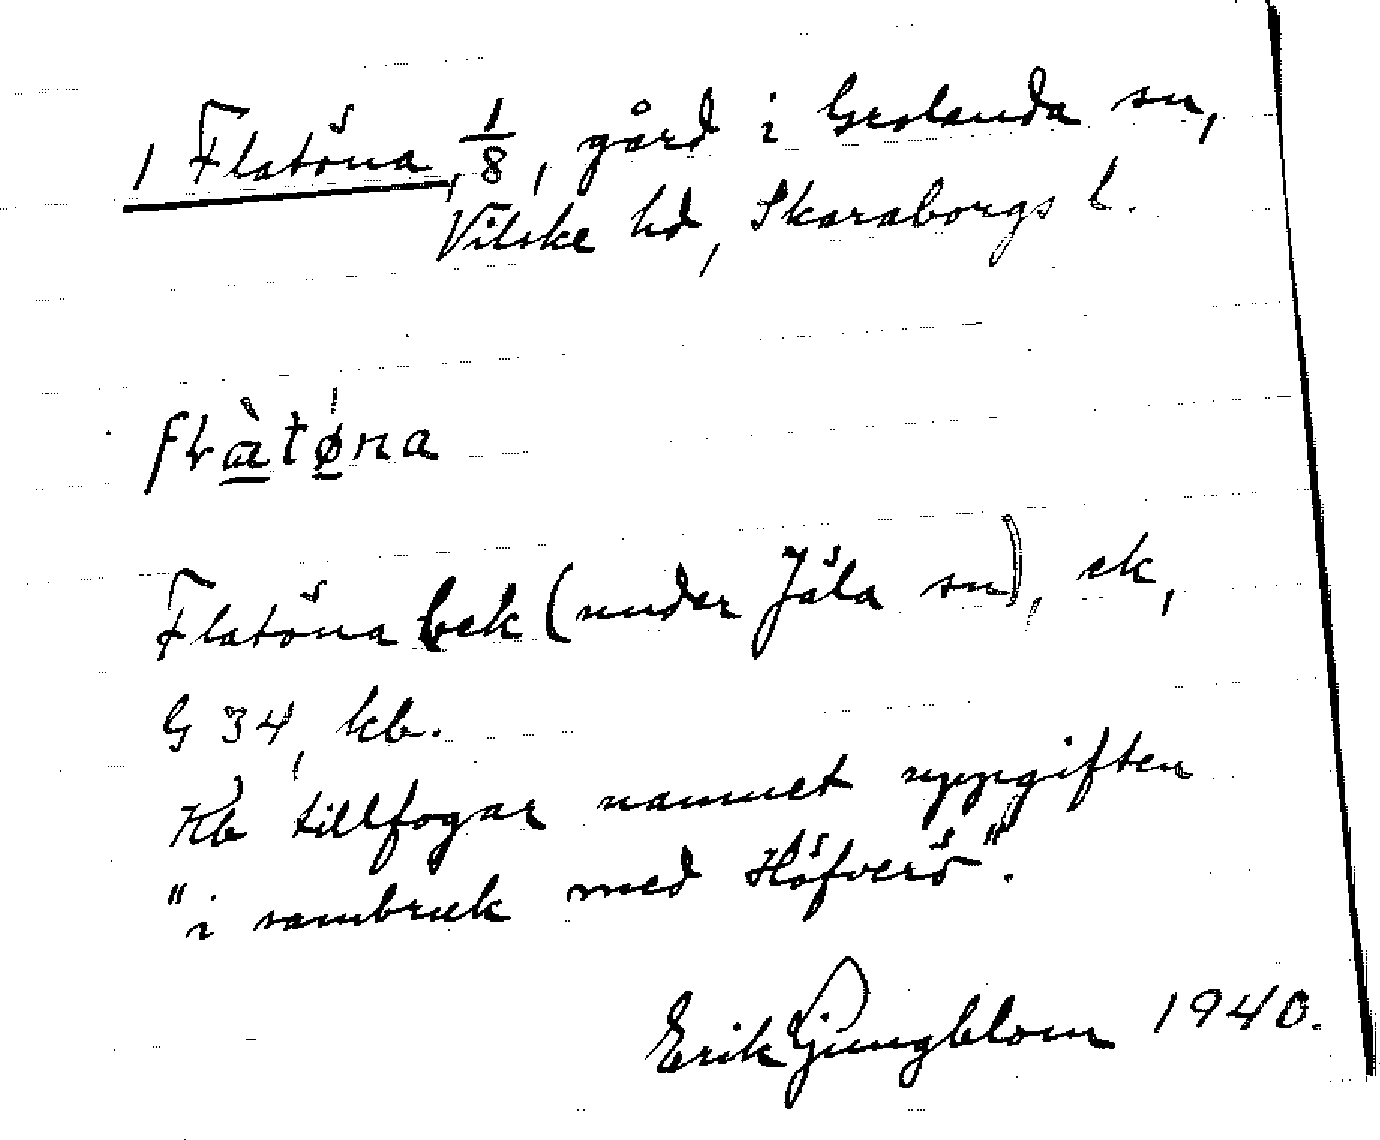 1 Flatöna, 1/8, gård i Grolanda sn,
Vilske hd, Skaraborgs l.
flàtøna
Flatöna bek (under Jäla sn), ek,
G 34, kb.
Kb tillfogar namnet uppgiften
"i sambruk med Höfverö".
Erik Ljungblom 1940.